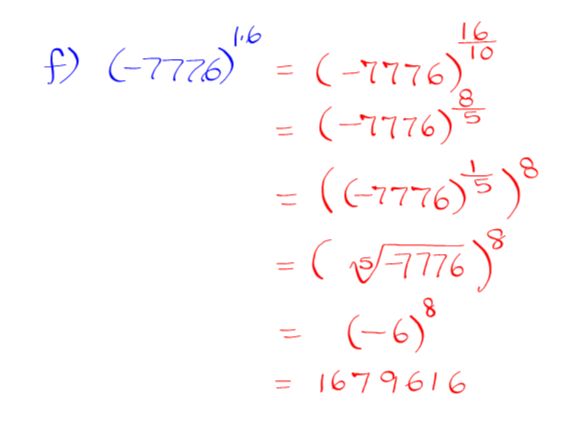 f) (-7776)^1.6 = (-7776)^(16/10)
= (-7776)^(8/5)
= ((-7776)^(1/5))^8
= (⁵√-7776)^8
= (-6)^8
= 1679616